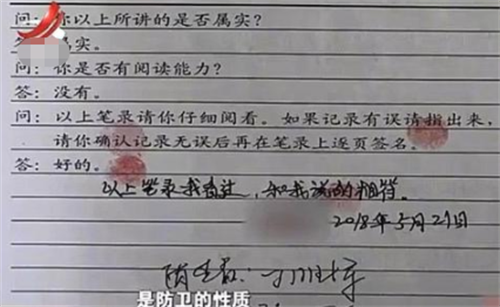 问：你以上所讲的是否属实？
答：属实。
问：你是否有阅读能力？
答：没有。
问：以上笔录请你仔细阅看。如果记录有误请指出来，
请你确认记录无误后再在笔录上逐页签名。
答：好的。
以上笔录我看过，和我说的相符。
2018年5月29日
是防卫的性质